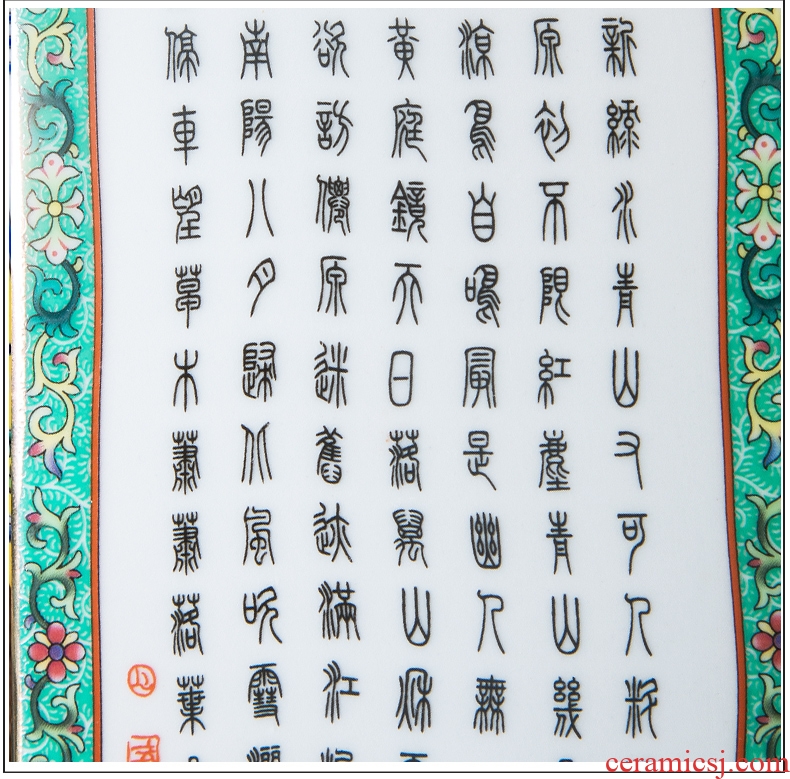 新綠水青山又可人
原初不紅塵青山幾
鳥自鳴是幽人無
黃庭鏡天日落萬山秋
欲訪僊原迷舊迹滿江
南陽八月歸風吹雪
停車望草木蕭蕭落葉
ceramicsj.com